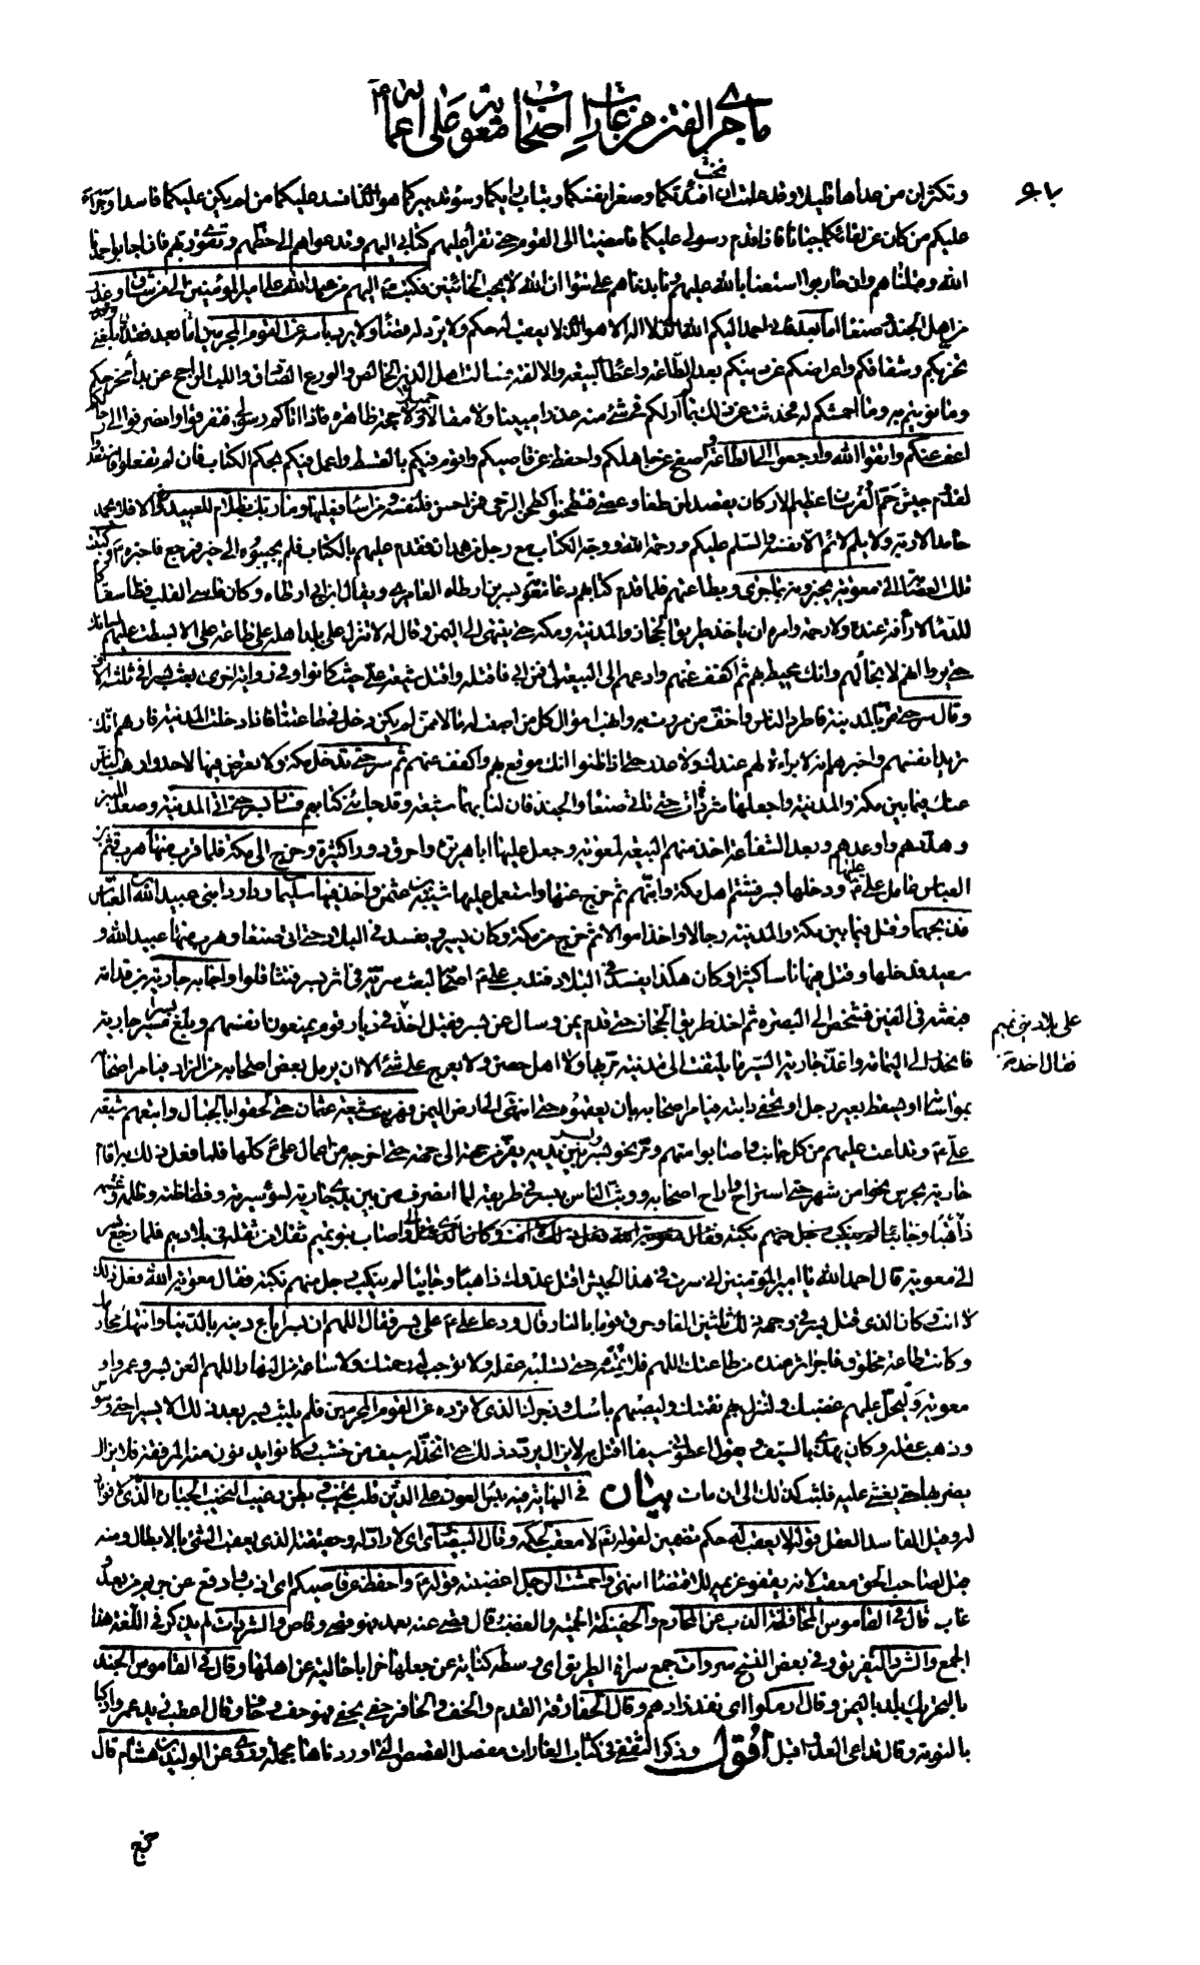 ما جرى من الفتن من غارات أصحاب معوية على أعماله ع
وتكثران من عددها قليلا وقد علمت ان نخب افئدتكما وصغر انفسكما وتباب رأيكما وسوء تدبيركما هو الذي افسد عليكما من لم يكن عليكما فاسدا وجرأ
عليكم من كان عن لقائكما جبانا فاذا قدم رسولى عليكما فامضيا الى القوم حتى تقرآ عليهم كتابى اليهم وتدعواهم الى حظهم وتقوى ربهم فان اجابوا حمدنا
الله وقبلناهم وان حاربوا استعنا بالله عليهم ونابذناهم على سواء ان الله لا يحب الخائنين فكتب ع اليهم من عبد الله على امير المؤمنين الى من شاق وغدر
من اهل الجند وصنعا اما بعد فانى احمد اليكم الله الذى لا اله الا هو الذى لا يعقب له حكم ولا يرد له قضاء ولا يرد بأسه عن القوم المجرمين اما بعد فقد بلغنى
تحزبكم وشقاقكم واعراضكم عن دينكم بعد الطاعة واعطاء البيعة والالفة فسالت اهل الدين الخالص والورع الصادق واللب الراجح عن بدأ مخرجكم
وما نويتم به وما احمشكم له فحدثت عن ذلك بما لم أر لكم فى شئ منه عذرا مبينا ولا مقالا جميلا ولا حجة ظاهرة فاذا اتاكم رسولى فتفرقوا وانصرفوا الى رحالكم
اعف عنكم واتقوا الله وارجعوا الى الطاعة اصفح عن جاهلكم واحفظ عن قاصيكم واقوم فيكم بالقسط واعمل فيكم بحكم الكتاب فان لم تفعلوا فاستعدوا
لقدوم جيش جم الفرسان عظيم الاركان يقصد لمن طغا وعصى فتطحنوا كطحن الرحى فمن احسن فلنفسه ومن اساء فعليها وما ربك بظلام للعبيد الا فلا يحمد
حامد الا ربه ولا يلم لائم الا نفسه والسلم عليكم ورحمة الله ووجه الكتاب مع رجل من همدان فقدم عليهم بالكتاب فلم يجيبوه الى خير فرجع فاخبره ع وكتبت
تلك العصابة الى معوية يخبرونه بما جرى وبطاعتهم فلما قدم كتابهم دعا معوية بسر بن ارطاة العامرى ويقال ابن ابى ارطاة وكان قاسى القلب فظا سفاكا
للدماء لا رأفة عنده ولا رحمة وامره ان ياخذ طريق الحجاز والمدينة ومكة حتى ينتهى الى اليمن وقال له لا تنزل على بلد اهله على طاعة على الا بسطت عليهم لسانك
حتى يروا انهم لا نجاء لهم وانك محيط بهم ثم اكفف عنهم وادعهم الى البيعة لى فمن ابى فاقتله واقتل شيعة على حيث كانوا وفى رواية اخرى بعث بسرا فى ثلثة الاف
وقال سر حتى تمر بالمدينة فاطرد الناس واخف من مررت به وانهب اموال كل من اصبت له مالا ممن لم يكن دخل فى طاعتنا فاذا دخلت المدينة فارهم انك
تريد انفسهم واخبرهم انه لا براءة لهم عندك ولا عذر حتى اذا ظنوا انك موقع بهم واكفف عنهم ثم سر حتى تدخل مكة ولا تعرض فيها لاحد وارهب الناس
عنك فيما بين مكة والمدينة واجعلها شردات حتى تاتى صنعا والجند فان لنا بهما شيعة وقد جاءنى كتابهم فسار بسر حتى اتى المدينة وصعد المنبر
وهددهم واوعدهم وبعد الشفاعة اخذ منهم البيعة لمعوية وجعل عليها اباهريرة واحرق دورا كثيرة وخرج الى مكة فلما قرب منها هرب قثم بن
العباس عامل على ع عليها ودخلها بسر فشتم اهل مكة وانبهم ثم خرج عنها واستعمل عليها شيبة بن عثمن واخذ فيها سليمان وداود ابنى عبيد الله بن العباس
فذبحهما وقتل فيما بين مكة والمدينة رجالا واخذ اموالا ثم خرج من مكة وكان يسير ويفسد فى البلاد حتى اتى صنعا وهرب منها عبيد الله و
سعيد فدخلها وقتل فيها ناسا كثيرا وكان هكذا يفسد فى البلاد فندب على ع اصحابه لبعث سرية فى اثر بسر فتثاقلوا واجابه جارية بن قدامة
فبعثه فى الفين فشخص الى البصرة ثم اخذ طريق الحجاز حتى قدم يمن وسال عن بسر فقيل اخذ فى ديار قوم يمنعون انفسهم وبلغ بسرا مسير جارية
فانحدر الى اليمامة واغذ جارية السير ما يلتفت الى مدينة مر بها ولا اهل حصن ولا يعرج على شئ الا ان يرمل بعض اصحابه من الزاد فيأمر اصحابه
بمواساته او يسقط بعير رجل او تحفى دابته فيأمر اصحابه بان يعقبوه حتى انتهى الى ارض اليمن فهرب شيعة عثمان حتى لحقوا بالجبال واتبعهم شيعة
على ع وتداعت عليهم من كل جانب واصابوا منهم ومر نحو بسر وبسر بين يديه يفر من جهة الى جهة حتى اخرجه من اعمال على ع كلها فلما فعل ذلك به اقام
جارية بحرس نحوا من شهر حتى استراح واراح اصحابه ووثب الناس ببسر فى طريقه لما انصرف من بين يدى جارية لسوء سيرته وفظاظته وظلمه وغشمه
واصاب بنو تميم ثقلا من ثقله فى بلادهم فلما رجع بسر
الى معوية قال احمد الله يا امير المؤمنين انى سرت فى هذا الجيش اقتل عدوك ذاهبا وجائيا لم ينكب رجل منهم نكبة فقال معوية الله فعل ذلك
لا انت وكان الذى قتل بسر فى وجهه ذلك ثلثين الفا وحرق قوما بالنار قال ودعا على ع على بسر فقال اللهم ان بسرا باع دينه بالدنيا وانتهك محارمك
وكانت طاعة مخلوق فاجر اثر عنده من طاعتك اللهم فلا تمته حتى تسلبه عقله ولا توجب له رحمتك ولا ساعة من النهار اللهم العن بسرا وعمرا و
معوية وليحل عليهم غضبك ولتنزل بهم نقمتك وليصبهم بأسك وزجرك الذى لا ترده عن القوم المجرمين فلم يلبث بسر بعد ذلك الا يسيرا حتى وسوس
وذهب عقله وكان يهذى بالسيف ويقول اعطونى سيفا اقتل به لا يزال يردد ذلك حتى اتخذ له سيف من خشب وكانوا يدنون منه المرفقة فلا يزال
يضربها حتى يغشى عليه فلبث كذلك الى ان مات بيان فى النهاية فيه بئس العون على الدين قلب نخيب وبطن رغيب النخيب الجبان الذى لا فؤاد
له وقيل الفاسد العقل قوله لا يعقب له حكم تضمين لقوله تع لا معقب لحكمه وقال البيضاوى اى لا راد له وحقيقته الذى يعقب الشئ بالابطال ومنه
قيل لصاحب الحق معقب لانه يقفو غريمه للاقتضاء انتهى واحمشت الرجل اغضبته قوله ع واحفظ عن قاصيكم اى اذب وادفع عن حريم من بعد و
غاب قال فى القاموس المحافظة الذب عن المحارم والحفيظة الحمية والغضب وقال قصى عنه بعد فهو قصى وقاص والشردات لم يذكر فى اللغة هذا
الجمع والشرد التفريق وفى بعض النسخ سروات جمع سراة الطريق اى وسطه كناية عن جعلها خرابا خالية عن اهلها وقال فى القاموس الجند
بالتحريك بلد باليمن وقال ارملوا اى نفد زادهم وقال الحفا رقة القدم والخف والحافر حفى يحفى فهو حف وحاف وقال اعقب زيد عمرا ركبا
بالنوبة وقال تداعى العدو اقبل اقول وذكر الثقفى فى كتاب الغارات مفصل القصص التى اوردناها مجملة وروى عن الوليد بن هشام قال
على بلاد بنى تميم
فقال اخذت
خرج